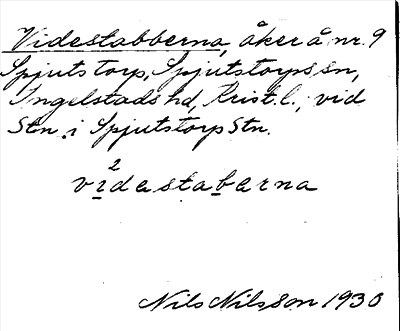 Videstabberna, åker å nr. 9
Spjutstorp, Spjutstorps sn,
Ingelstads hd, Krist.l., vid
Stn. i Spjutstorp Stn.
2
videstaberna
Nils Nilsson 1930